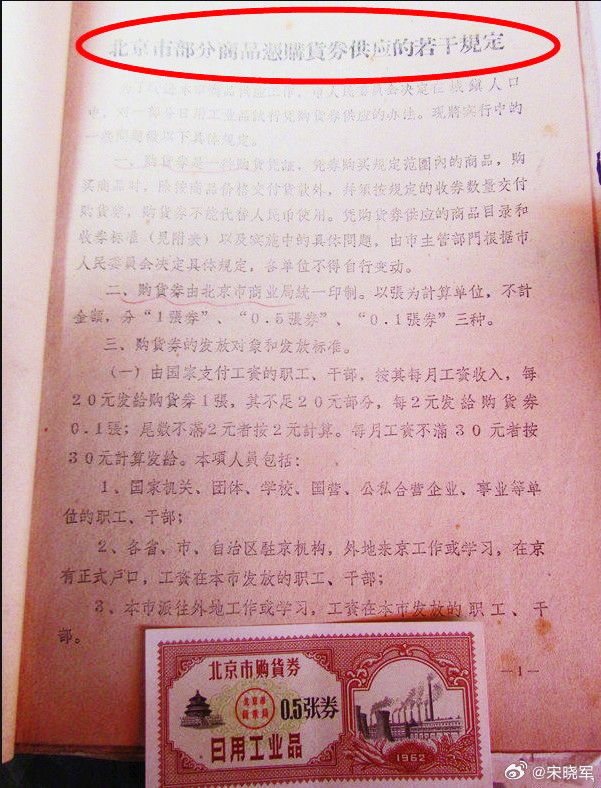 北京市部分商品憑購貨券供应的若干規定
为了改進本市商品供应工作，市人民委員会决定在城鎮人口
中，对一部分日用工业品試行凭购貨券供应的办法。現将実行中的
一些問題做以下具体規定。
一、购貨券是一种购貨凭証，凭券购买規定范圍內的商品，购
买商品时，除按商品价格交付貨款外，并须按規定的收券数量交付
购貨券，购貨券不能代替人民币使用。凭购貨券供应的商品目录和
收券标准（見附表）以及实施中的具体問題，由市主管部門根据市
人民委員会决定具体規定，各单位不得自行变动。
二、购貨券由北京市商业局統一印制。以張为計算单位，不計
金額，分“1張券”、“0.5張券”、“0.1張券”三种。
三、购貨券的发放对象和发放标准。
（一）由国家支付工資的职工、干部，按其每月工資收入，每
20元发給购貨券1張，其不足20元部分，每2元发給购貨券
0.1張；尾数不滿2元者按2元計算。每月工資不滿30元者按
30元計算发給。本項人員包括：
1、国家机关、团体、学校、国营、公私合营企业、事业等单
位的职工、干部；
2、各省、市、自治区駐京机构，外地来京工作或学习，在京
有正式戶口，工資在本市发放的职工、干部；
3、本市派往外地工作或学习，工資在本市发放的职工、干
部。
—1—
北京市购貨券
北京市
商業局
0.5张券
日用工业品
1962
@宋晓军